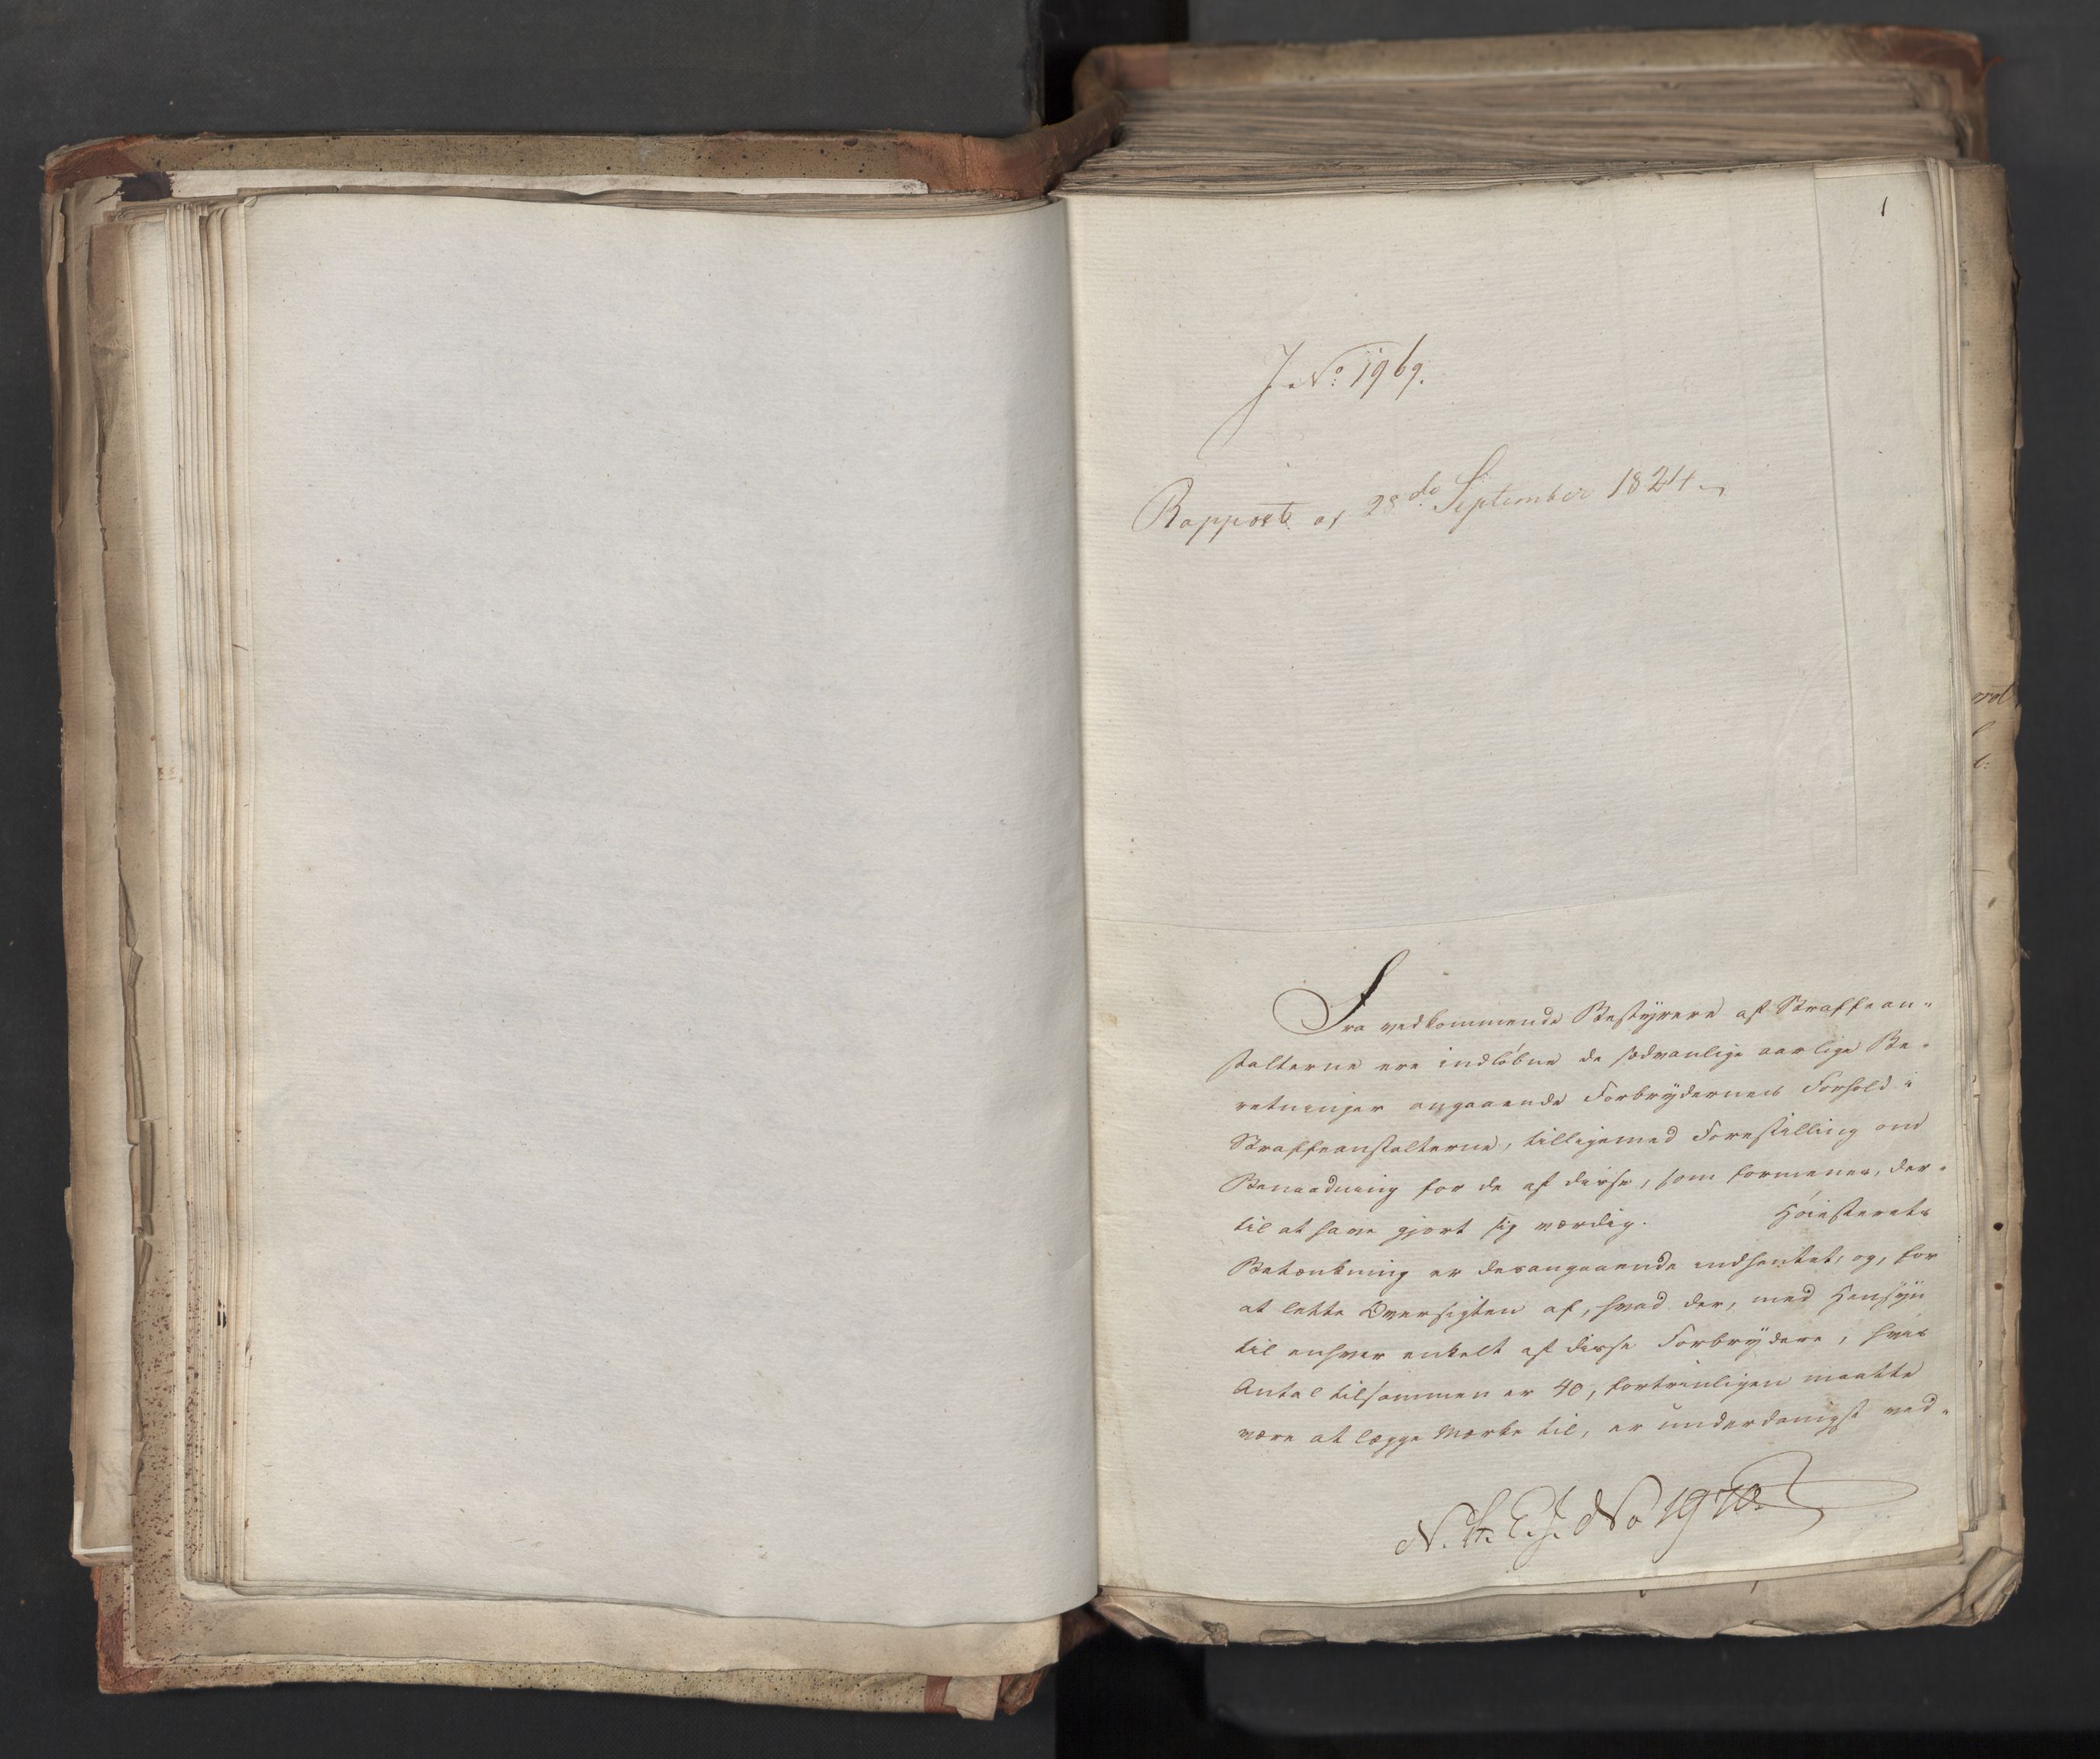 1
J. No. 1969.
Rapport af 28de September 1824
Fra vedkommende Bestÿrere af Straffean-
stalterne ere indløbne de sædvanlige aarlige Be-
retninger angaaende Forbrÿdernes Forhold i
Straffeanstalterne, tilligemed Forestilling om
Benaadning for de af disse, som formenes, der-
til at have gjort sig værdig. Høiesterets
Betænkning er desangaaende indhentet, og, for
at lette Oversigten af, hvad der, med Hensÿn
til enhver enkelt af disse Forbrÿdere, hvis
Antal tilsammen er 40, fortrinligen maatte
være at lægge Mærke til, er underdanigst ved-
N. H. E. J. No 1970.